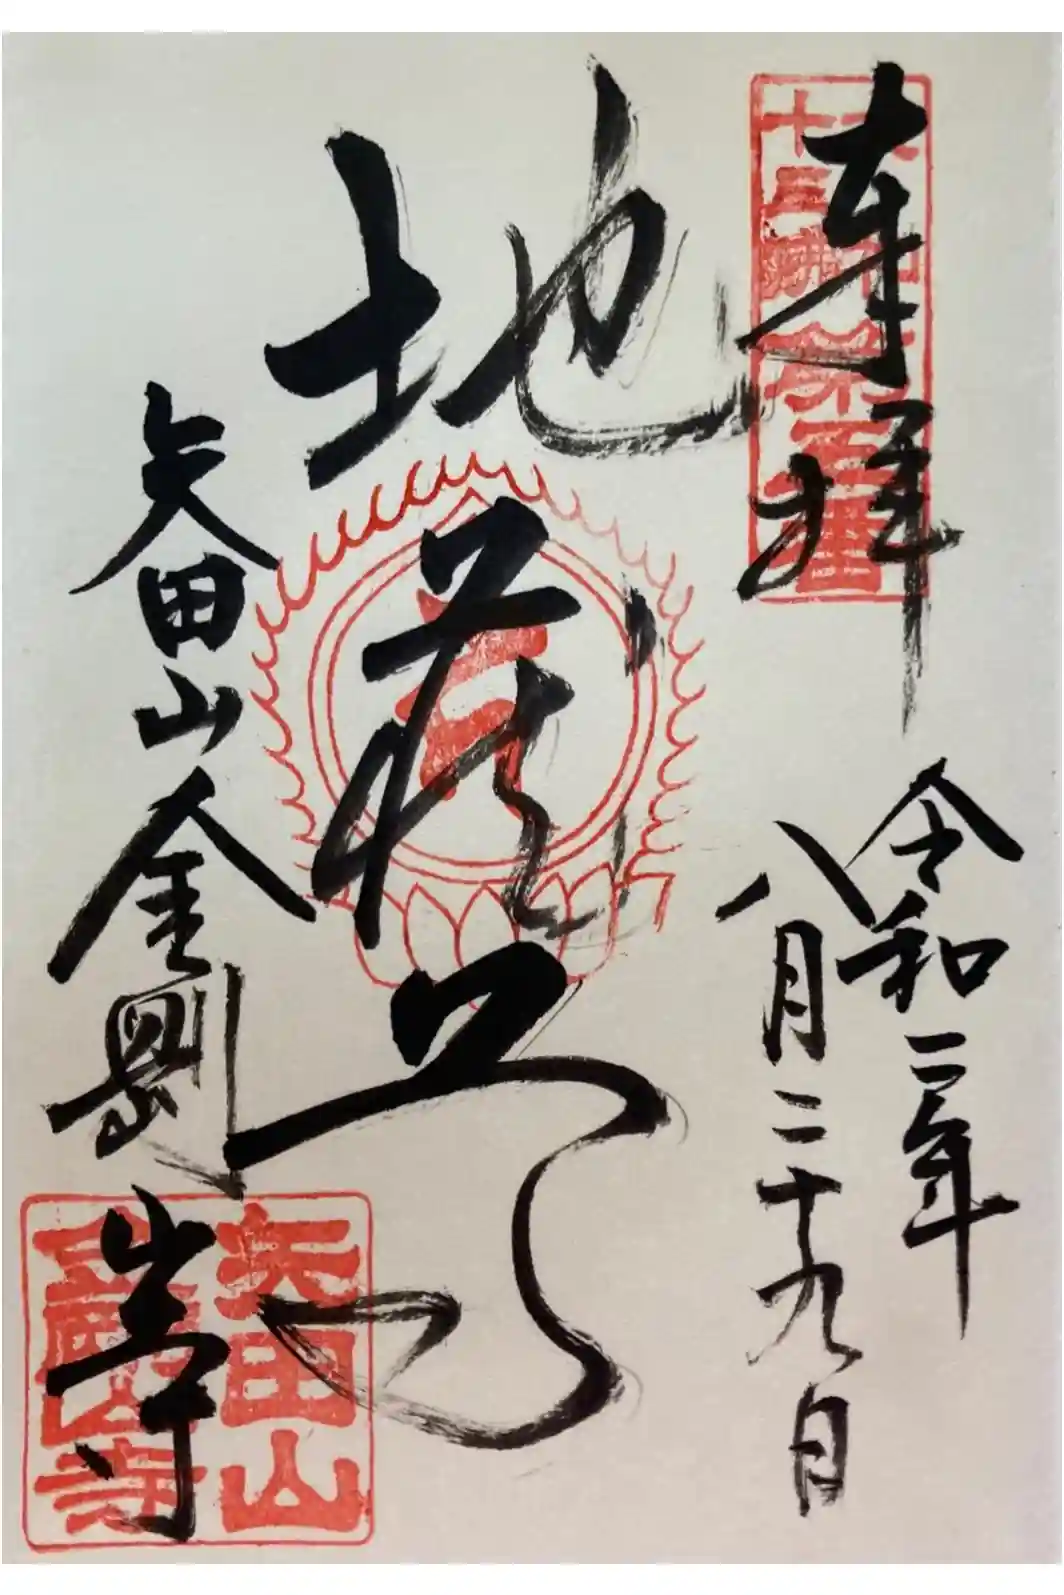 奉拝
大和
十三佛
第五番
令和二年
八月二十九日
地蔵尊
矢田山金剛山寺
矢田山
金剛山寺